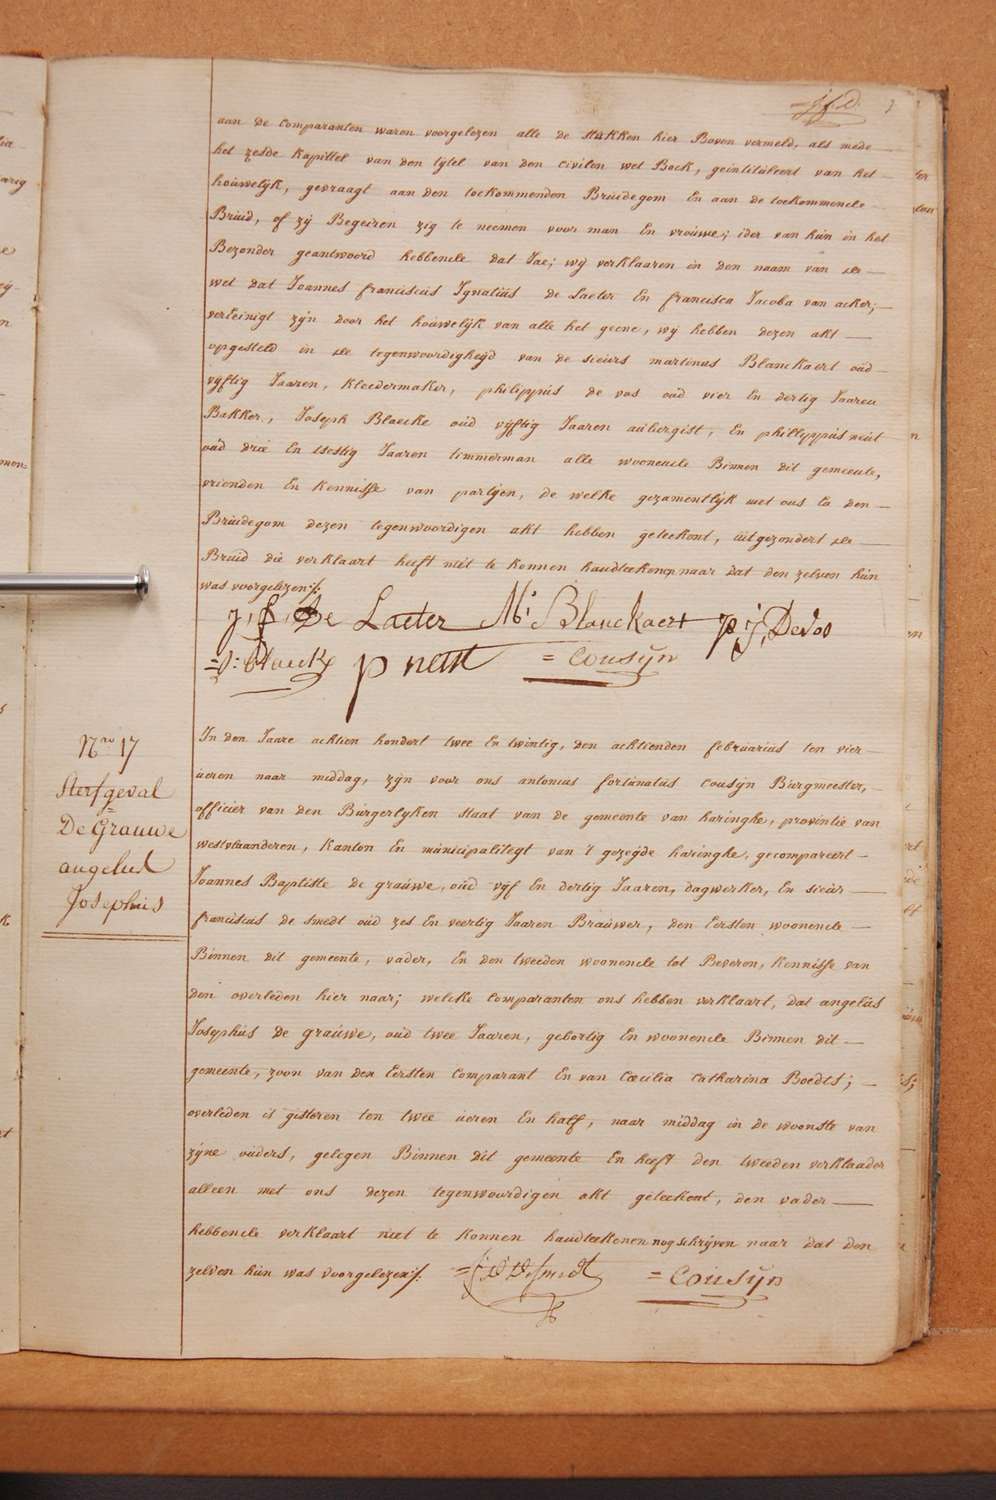 aan de comparanten waren voorgelezen alle de stukken hier Boven vermeld, als mede
het zesde kapittel van den tytel van den civilen wet Boek, geintituleert van het
houwelijk, gevraagt aan den toekommenden Bruidegom En aan de toekommende
Bruid, of zij Begeiren zig te neemen voor man En vrouwe; ider van hun in het
Bezonder geantwoord hebbende dat Jae; wij verklaaren in den naam van de
wet dat Joannes franciscus Ignatius de Laeter En francisca Jacoba van acker;
vereinigt zijn door het houwelijk van alle het geene, wij hebben dezen akt
opgesteld in de tegenwoordigheijd van de sieurs martinus Blanckaert oud
vyftig Jaaren, kleedermaker, philippus de vos oud vier En dertig Jaaren
Bakker, Joseph Blaecke oud vyftig Jaaren aubergist, En philippus neut
oud drie En tsestig Jaaren timmerman alle woonende Binnen dit gemeente,
vrienden En kennisse van partijen, de welke gezamentlijk met ons En den
Bruidegom dezen tegenwoordigen akt hebben geteekent, uitgezondert de
Bruid die verklaart heeft niet te konnen handteekenen naar dat den zelven hun
was voorgelezen ./.
J, f, De Laeter M: Blanckaert p j, Devos
=J: blaecke p neut = Cousyn
Nro 17
Sterfgeval
=
De Grauwe
angelus
Josephus
In den Jaare achtien hondert twee En twintig, den achtienden februarius ten vier
ueren naar middag, zijn voor ons antonius fortunatus Cousijn Burgmeester,
officier van den Burgerlyken staat van de gemeente van haringhe, provintie van
westvlaanderen, kanton En municipaliteyt van 't gezeyde haringhe, gecompareert
Joannes Baptiste de grauwe, oud vyf En dertig Jaaren, dagwerker, En sieur
franciscus de smedt oud zes En veertig Jaaren Brauwer, den Eersten woonende
Binnen dit gemeente, vader, En den tweeden woonende tot Beveren, kennisse van
den overleden hier naar; welcke comparanten ons hebben verklaart, dat angelus
Josephus de grauwe, oud twee Jaaren, gebortig En woonende Binnen dit
gemeente, zoon van den Eersten Comparant En van Cæcilia Catharina Boedts;
overleden is gisteren ten twee ueren En half, naar middag in de woonste van
zijne ouders, gelegen Binnen dit gemeente En heeft den tweeden verklaader
alleen met ons dezen tegenwoordigen akt geteekent, den vader
hebbende verklaart niet te konnen handteekenen nog schrijven naar dat den
zelven hun was voorgelezen ./. = f: D Desmedt = Cousyn